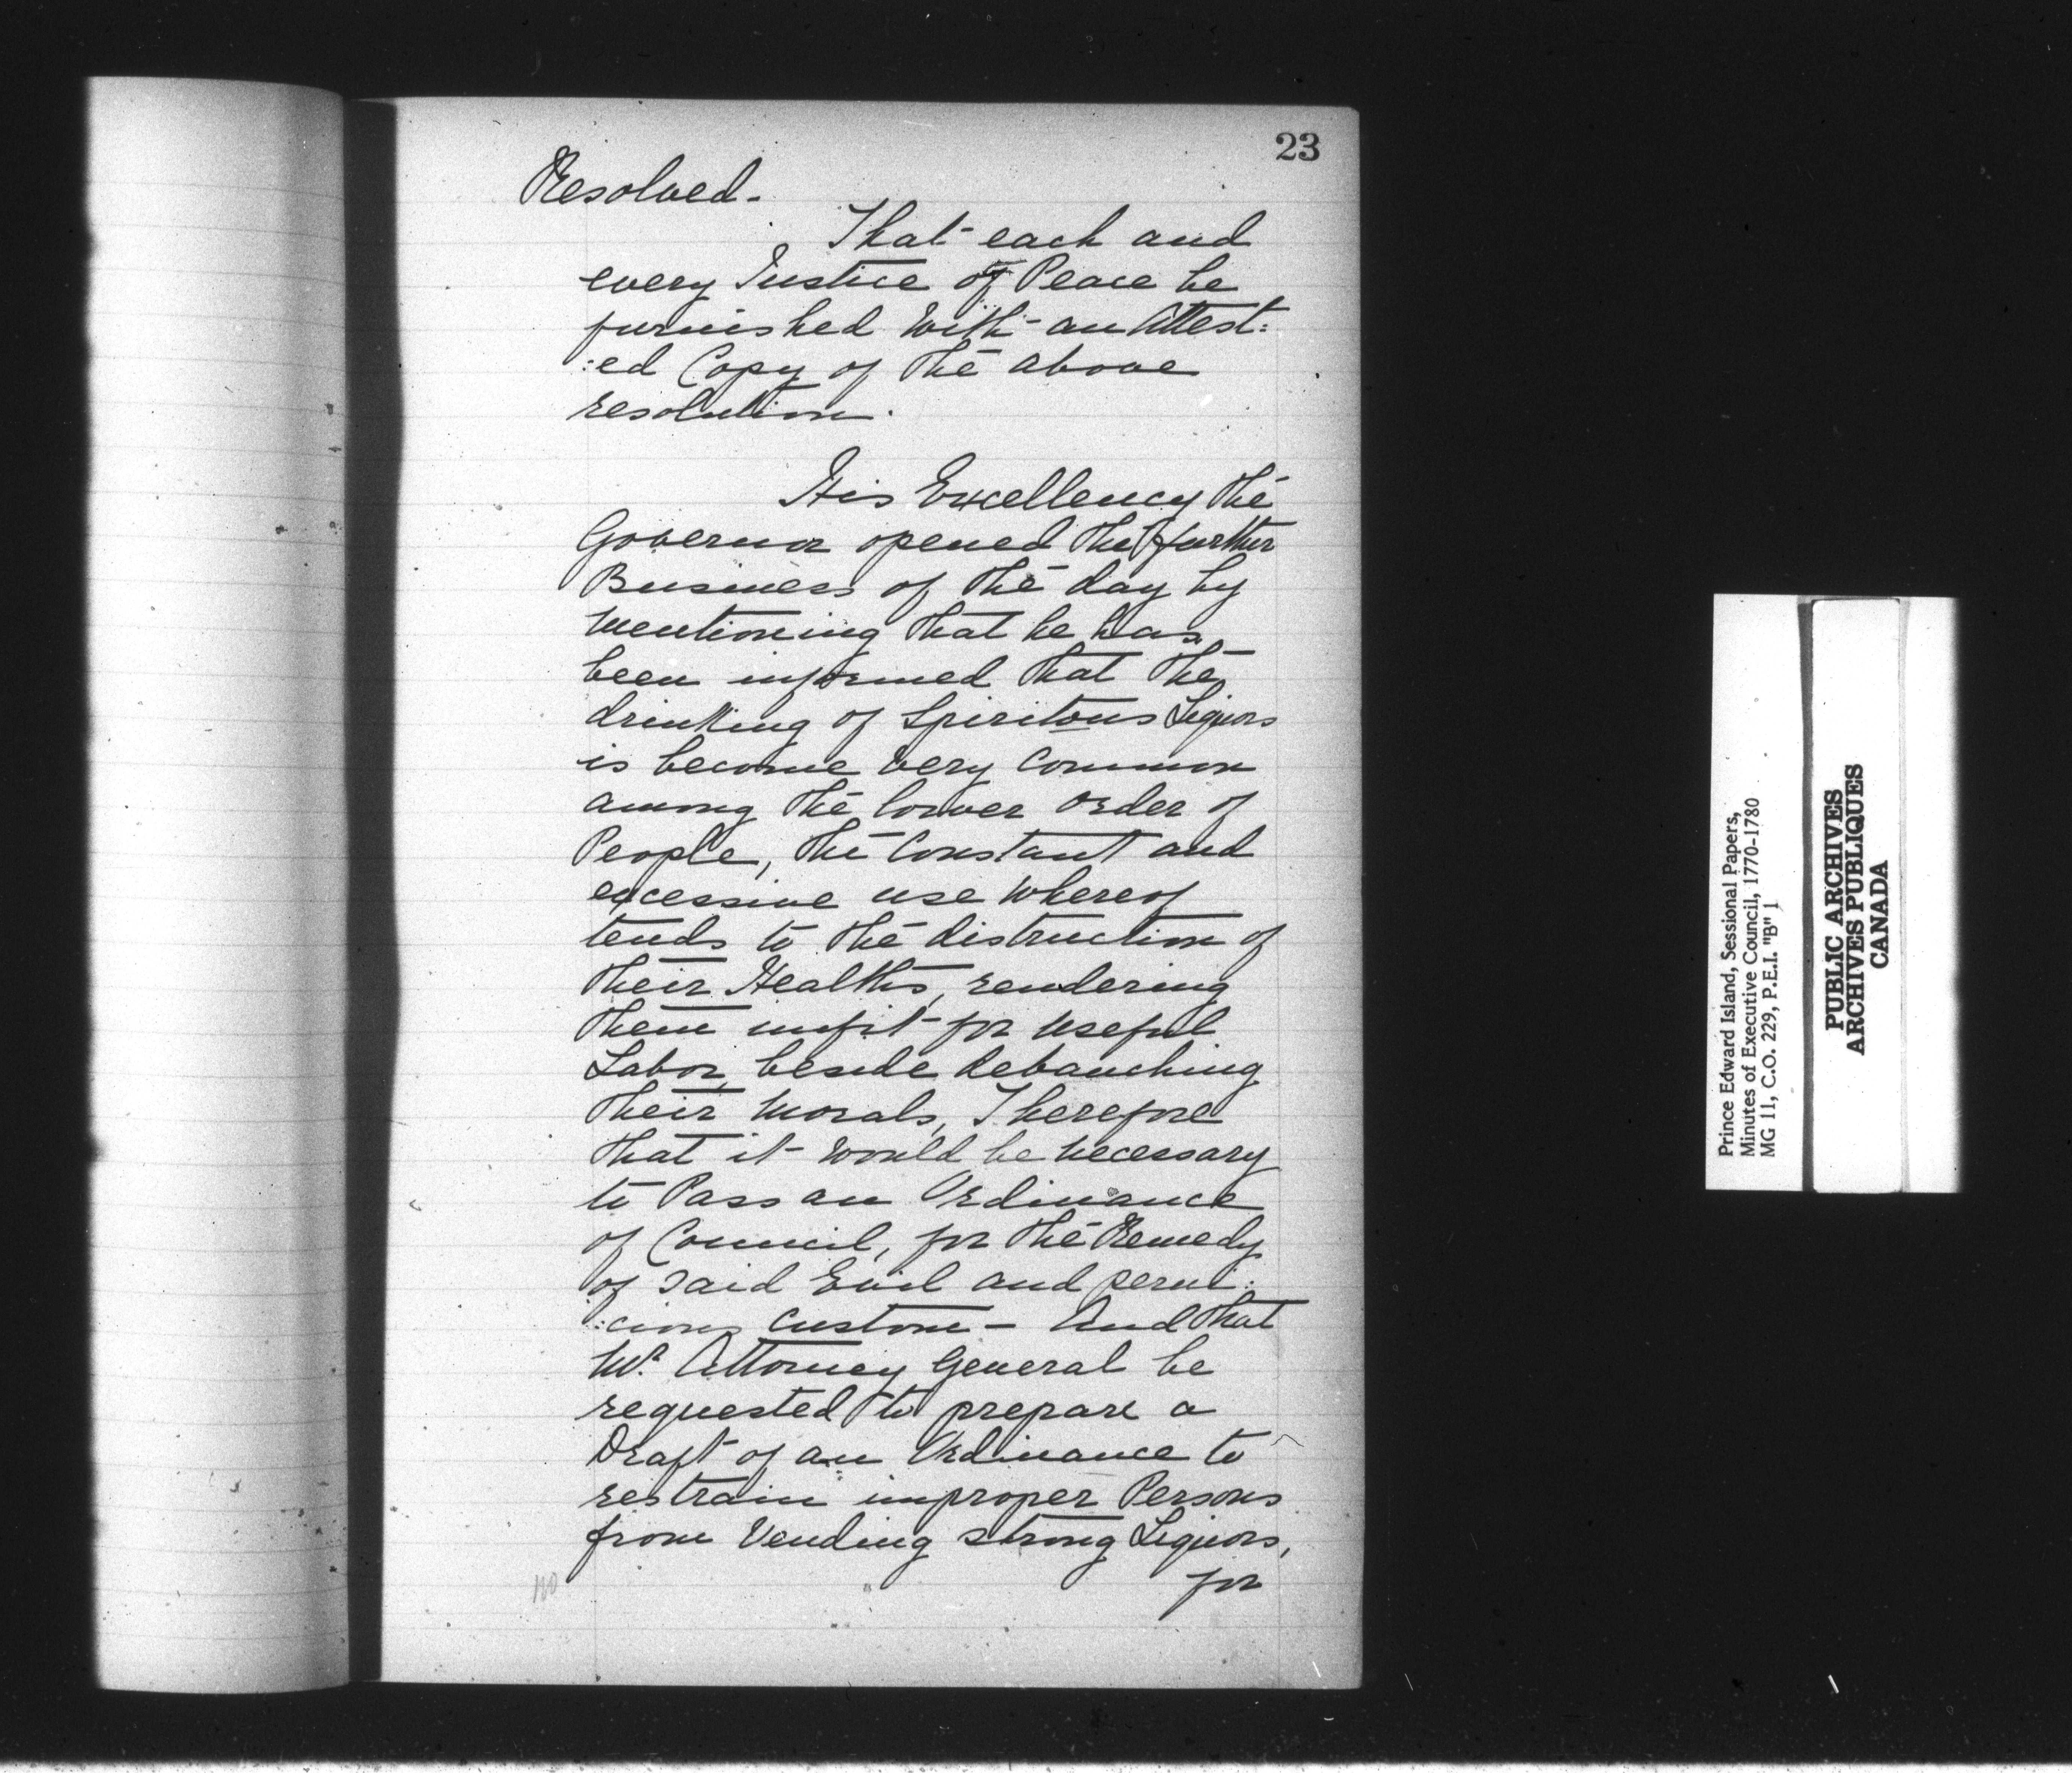 23
Resolved.
That each and
every Justice of Peace be
furnished with an Attest:
:ed Copy of the above
resolution.
His Excellency the
Governor opened the further
Business of the day by
mentioning that he has
been informed that the
drinking of Spiritous Liquors
is become very Common
among the lower Order of
People, the Constant and
excessive use whereof
tends to the distruction of
their Healths, rendering
them unfit for useful
Labor, beside debauching
their Morals, Therefore
that it would be necessary
to Pass an Ordinance
of Council, for the Remedy
of said Evil and perni:
:cious custom – And that
Mr. Attorney General be
requested to prepare a
Draft of an Ordinance to
restrain improper Persons
from Vending strong Liquors,
for
Prince Edward Island, Sessional Papers,
Minutes of Executive Council, 1770-1780
MG 11, C.O. 229, P.E.I. "B" 1
PUBLIC ARCHIVES
ARCHIVES PUBLIQUES
CANADA